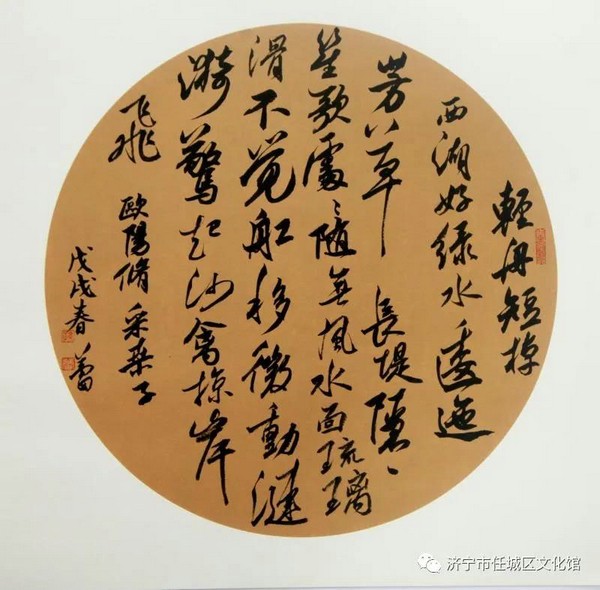 輕舟短棹
西湖好绿水逶迤
芳草長堤隱〻
笙歌處〻随無風水面琉璃
滑不觉舡移微動漣
漪驚起沙禽掠岸
飛
歐陽脩采桑子
戊戌春
济宁市任城区文化馆